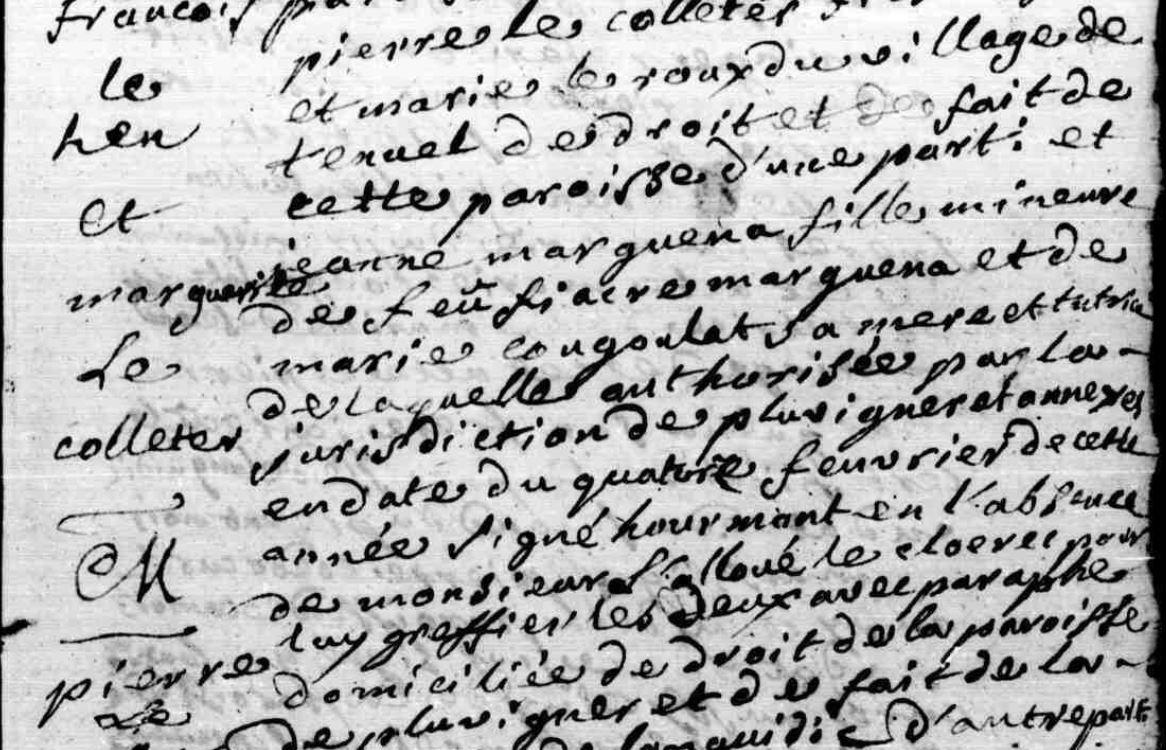 françois
le
hen
et
marguerite
Le
colleter
M
pierre
Le
pierre le colleter
et marie le roux du village de
tenuel de droit et de fait de
cette paroisse d'une part : et
jeanne marguena fille mineure
de feu fiacre marguena et de
marie cougoulat sa mere et tutrice
de laquelle authorisée par la
jurisdiction de pluvigner et annexes
en date du quatorze feuvrier de cette
année signé hourmant en l'absence
de monsieur l'alloué le cloerec pour
luy greffier les deux avec paraphe
domiciliée de droit de la paroisse
de pluvigner et de fait de la
d'autre part